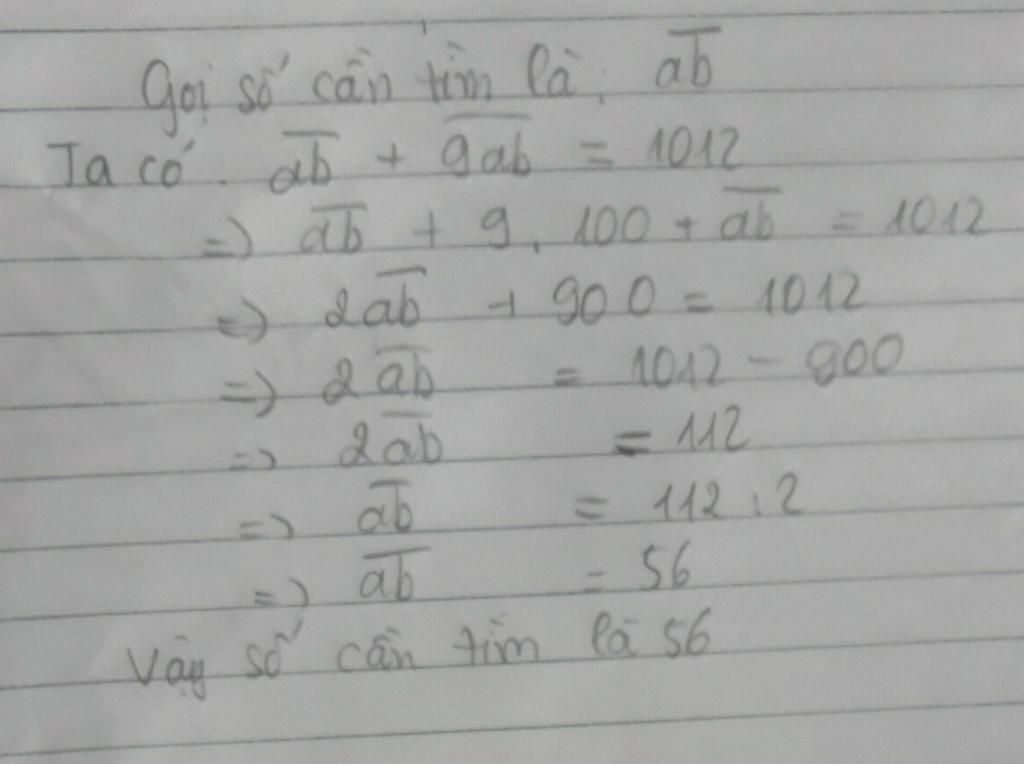 Gọi số cần tìm là: a̅b̅
Ta có. a̅b̅ + 9̅a̅b̅ = 1012
=) a̅b̅ + 9. 100 + a̅b̅ = 1012
=) 2a̅b̅ + 900 = 1012
=) 2a̅b̅ = 1012 - 900
=) 2a̅b̅ = 112
=) a̅b̅ = 112 : 2
=) a̅b̅ = 56
Vậy số cần tìm là 56